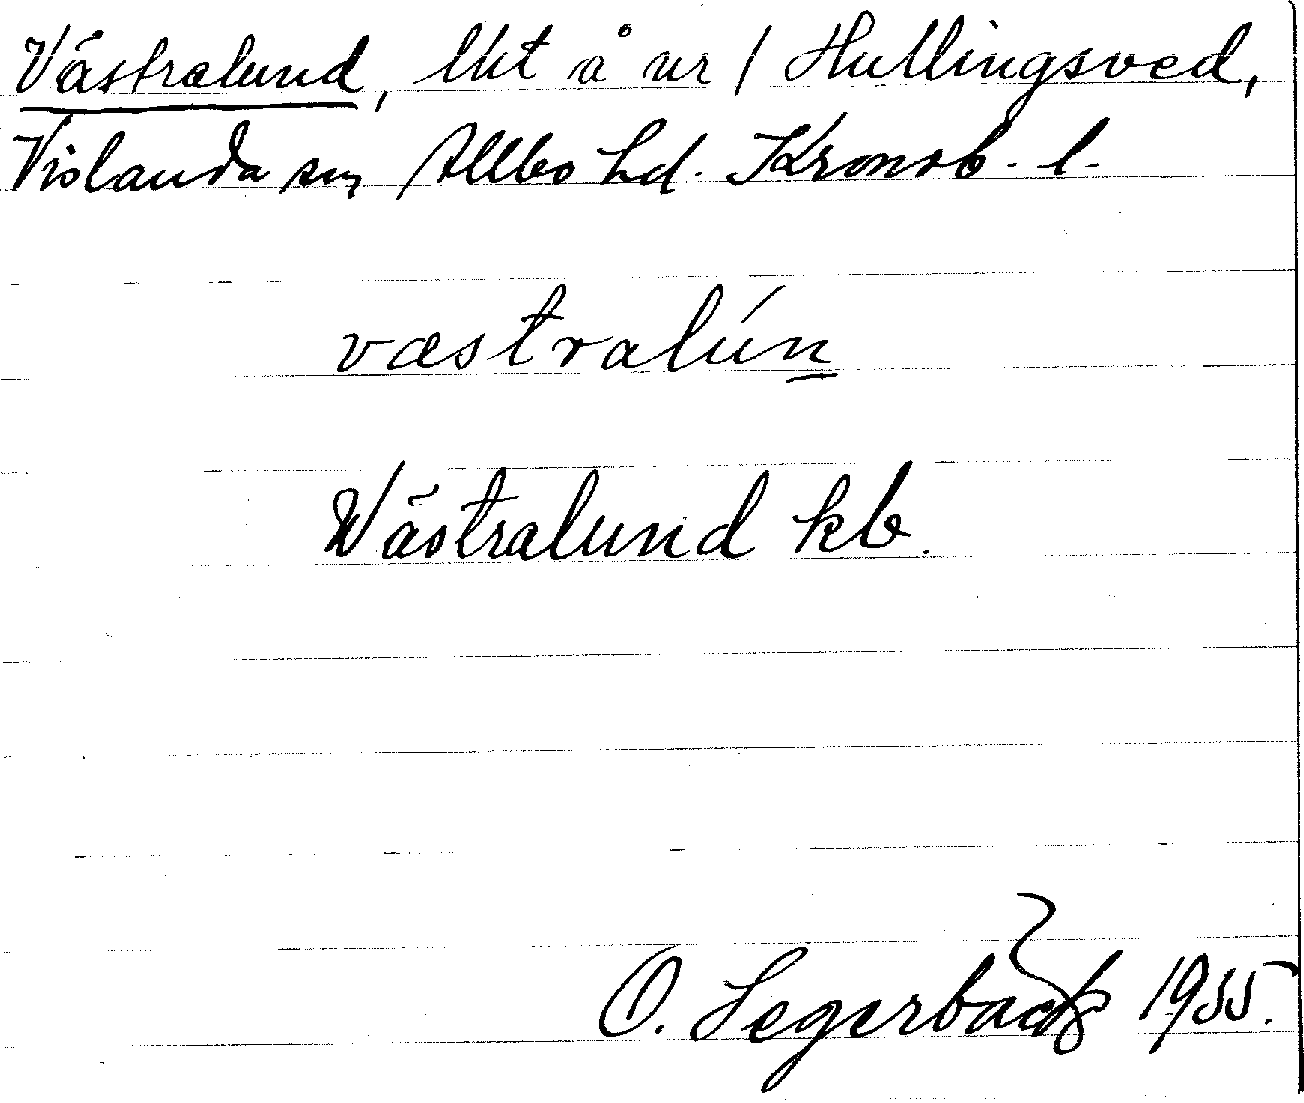 Västralund, lht å nr 1 Hullingsved,
Vislanda sn, Allbo hd. Kronob. l.
væstralún
Wästralund kb.
O. Segerbäck 1935.